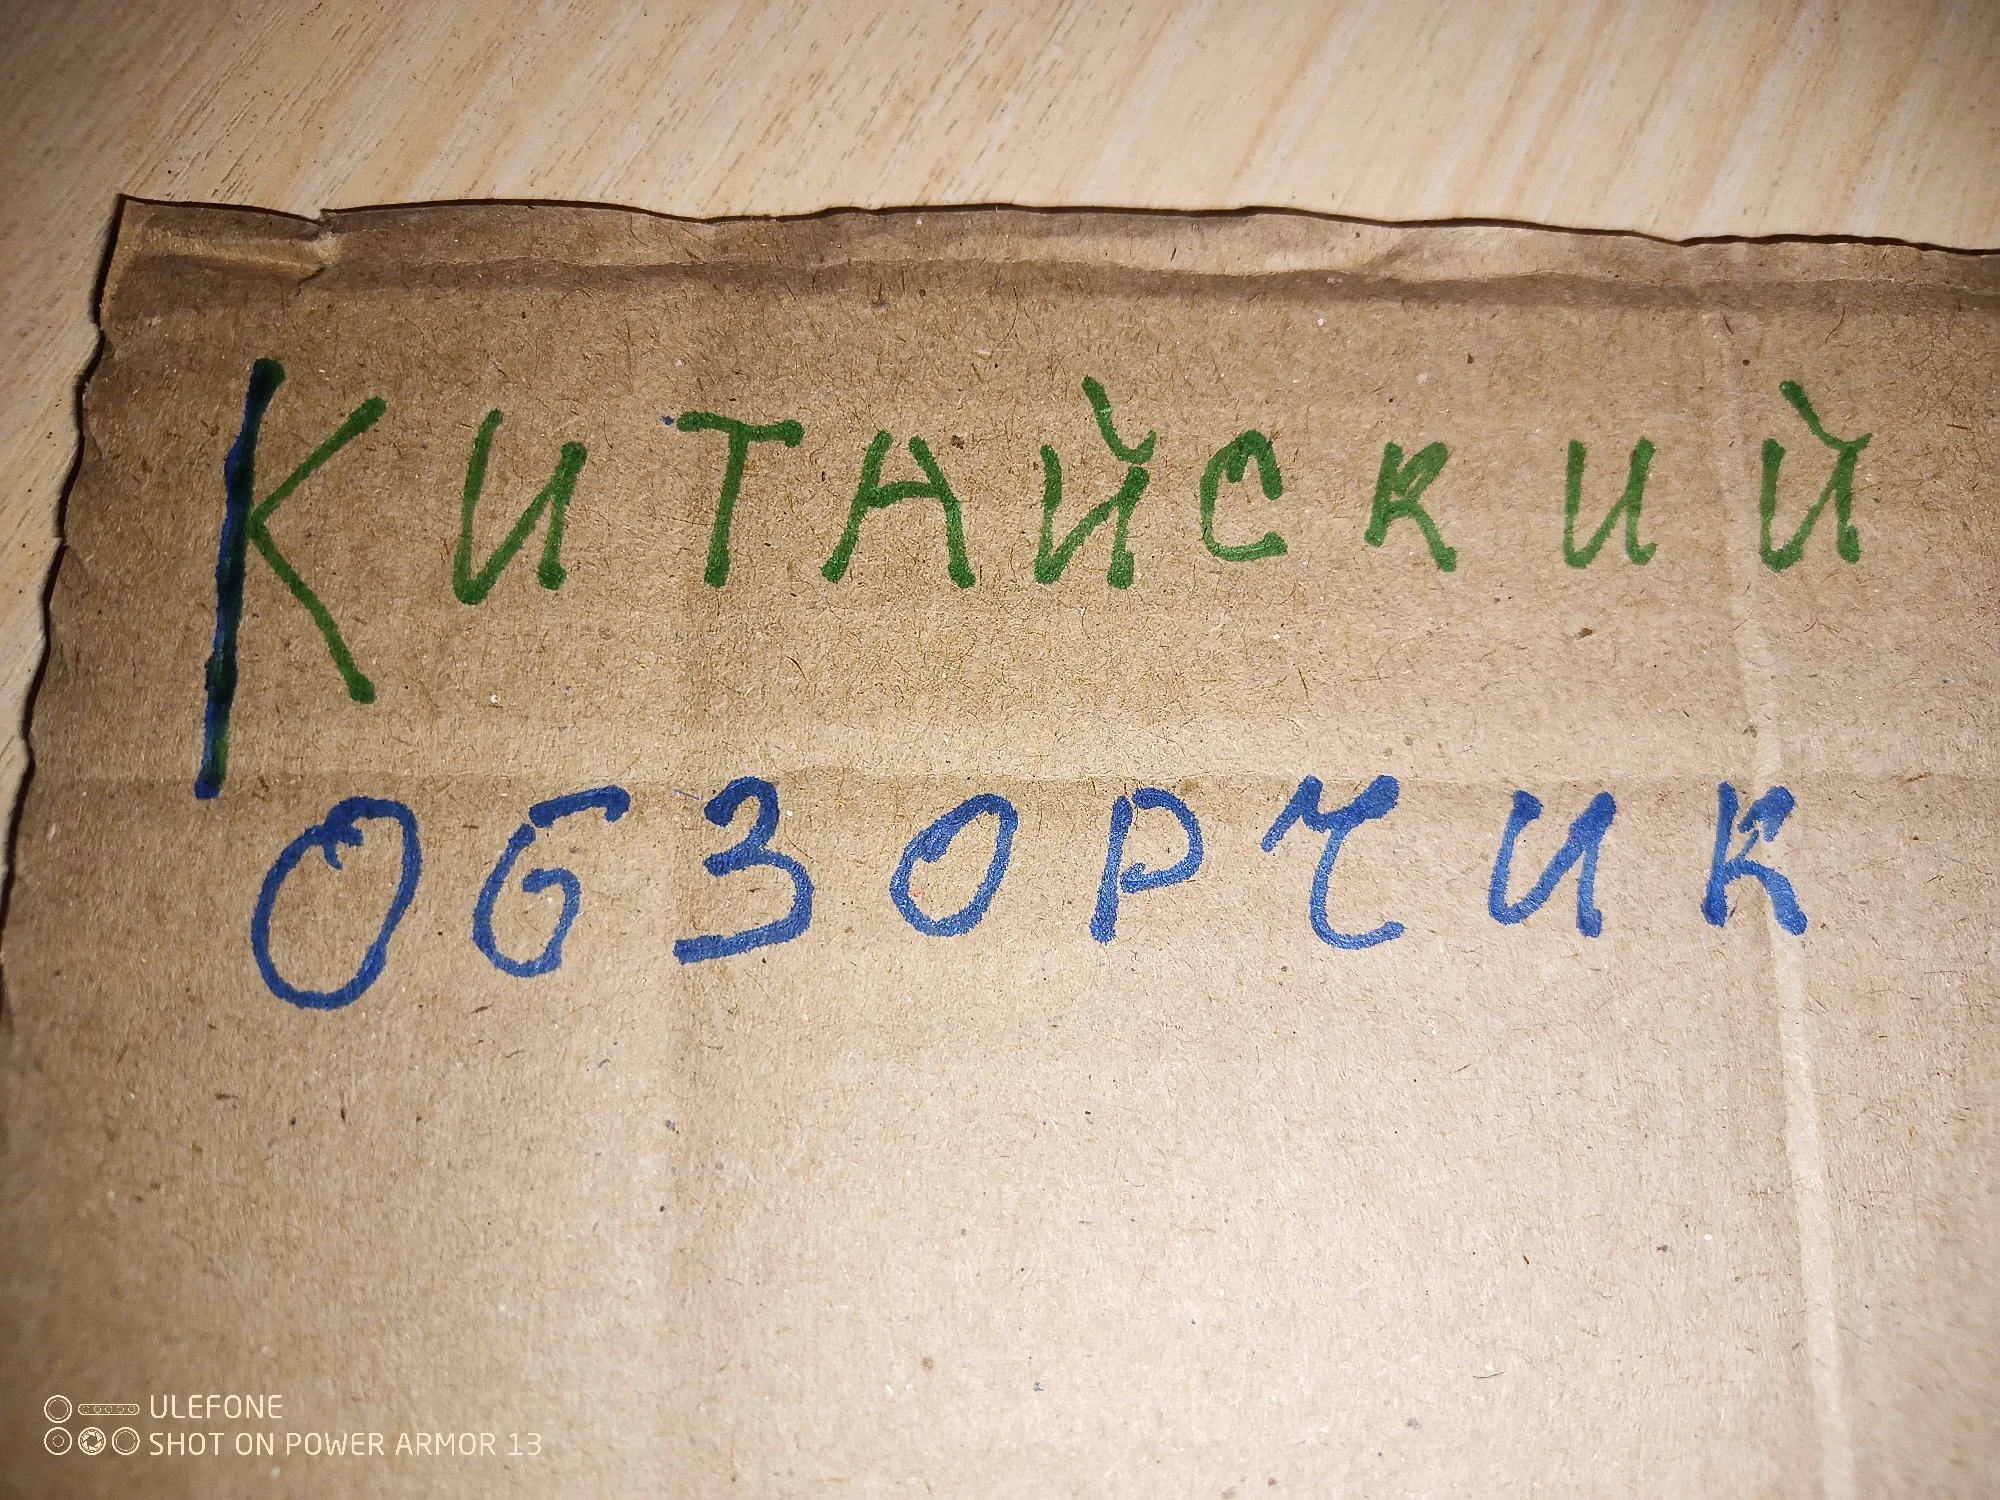 Китайский
обзорчик
ULEFONE
SHOT ON POWER ARMOR 13